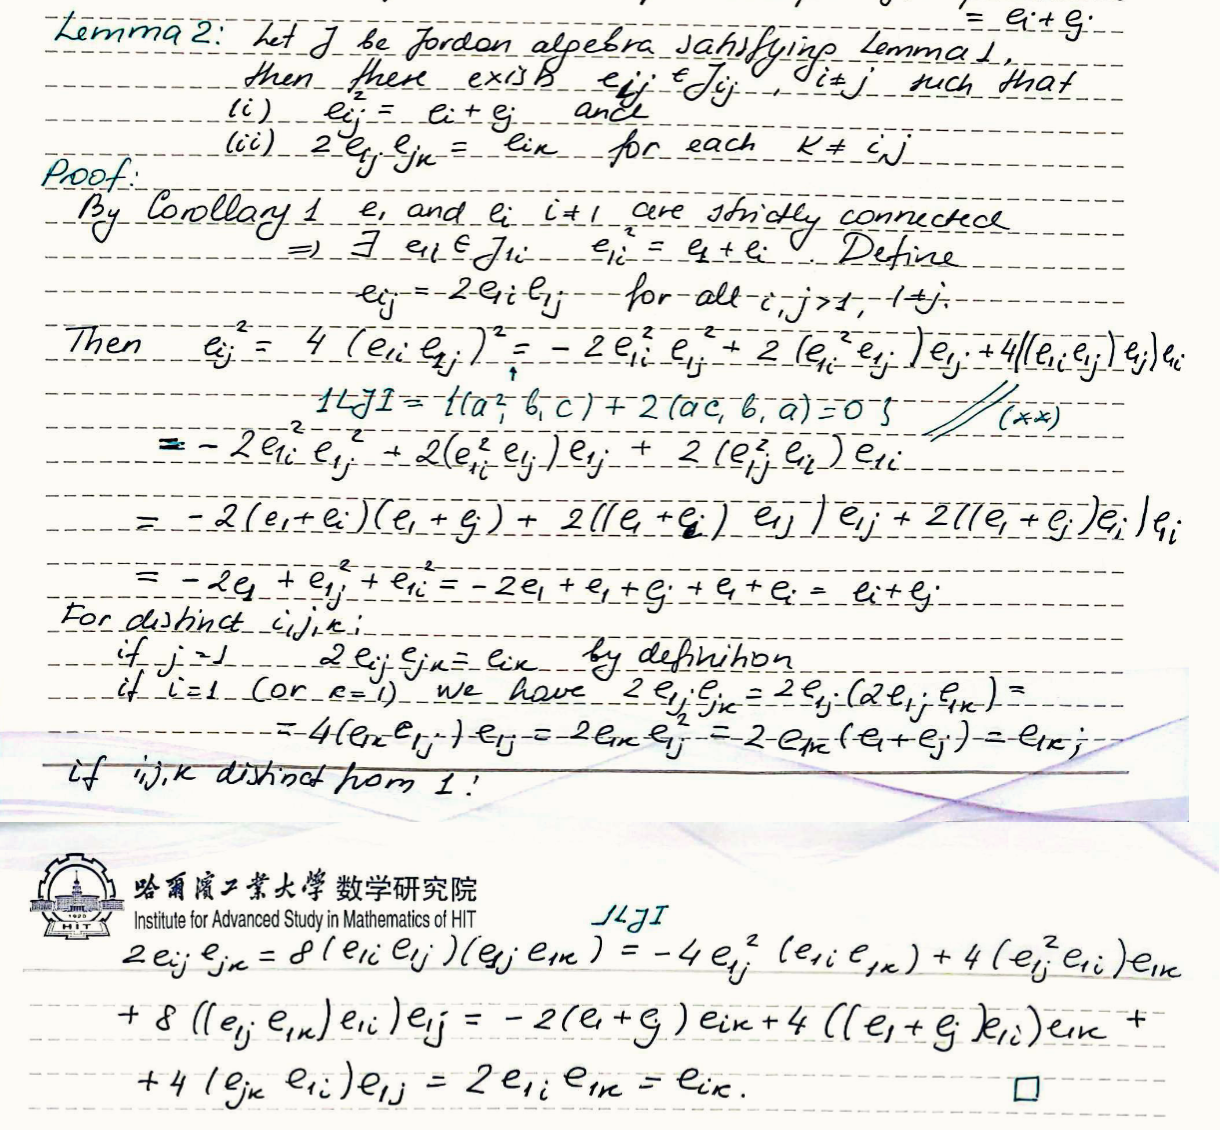 = ei + ej
Lemma 2: Let J be Jordan algebra satisfying Lemma 1,
then there exists eij ∈ Jij, i≠j such that
(i) eij² = ei + ej and
(ii) 2 eij ejk = eik for each k ≠ i,j
Proof:
By Corollary 1 e1 and ei i≠1 are strictly connected
⇒ ∃ e1i ∈ J1i e1i² = e1 + ei. Define
eij = 2e1i e1j for all i,j>1, i≠j.
Then eij² = 4 (e1i e1j)² = -2e1i² e1j² + 2 (e1i² e1j) e1j + 4((e1i e1j) e1j) e1i
↑
1LJI = {(a², b, c) + 2(ac, b, a) = 0} (**)
= -2e1i² e1j² + 2(e1i² e1j) e1j + 2 (e1j² e1i) e1i
= -2(e1+ei)(e1+ej) + 2((e1+ei) e1j) e1j + 2((e1+ej)e1i) e1i
= -2e1 + e1j² + e1i² = -2e1 + e1 + ej + e1 + ei = ei + ej
For distinct i,j,k:
if j=1 2 eij ejk = eik by definition
if i=1 (or k=1) we have 2 e1j ejk = 2e1j (2e1j e1k) =
= 4(e1k e1j) e1j = 2e1k e1j² = 2 e1k (e1+ej) = e1k;
if i,j,k distinct from 1:
哈爾濱工業大學 数学研究院
Institute for Advanced Study in Mathematics of HIT
1920
HIT
1LJI
2 eij ejk = 8 (e1i e1j)(e1j e1k) = -4 e1j² (e1i e1k) + 4 (e1j² e1i) e1k
+ 8 ((e1j e1k) e1i) e1j = -2(e1+ej) eik + 4 ((e1+ej)e1i) e1k +
+ 4 (ejk e1i) e1j = 2 e1i e1k = eik. □